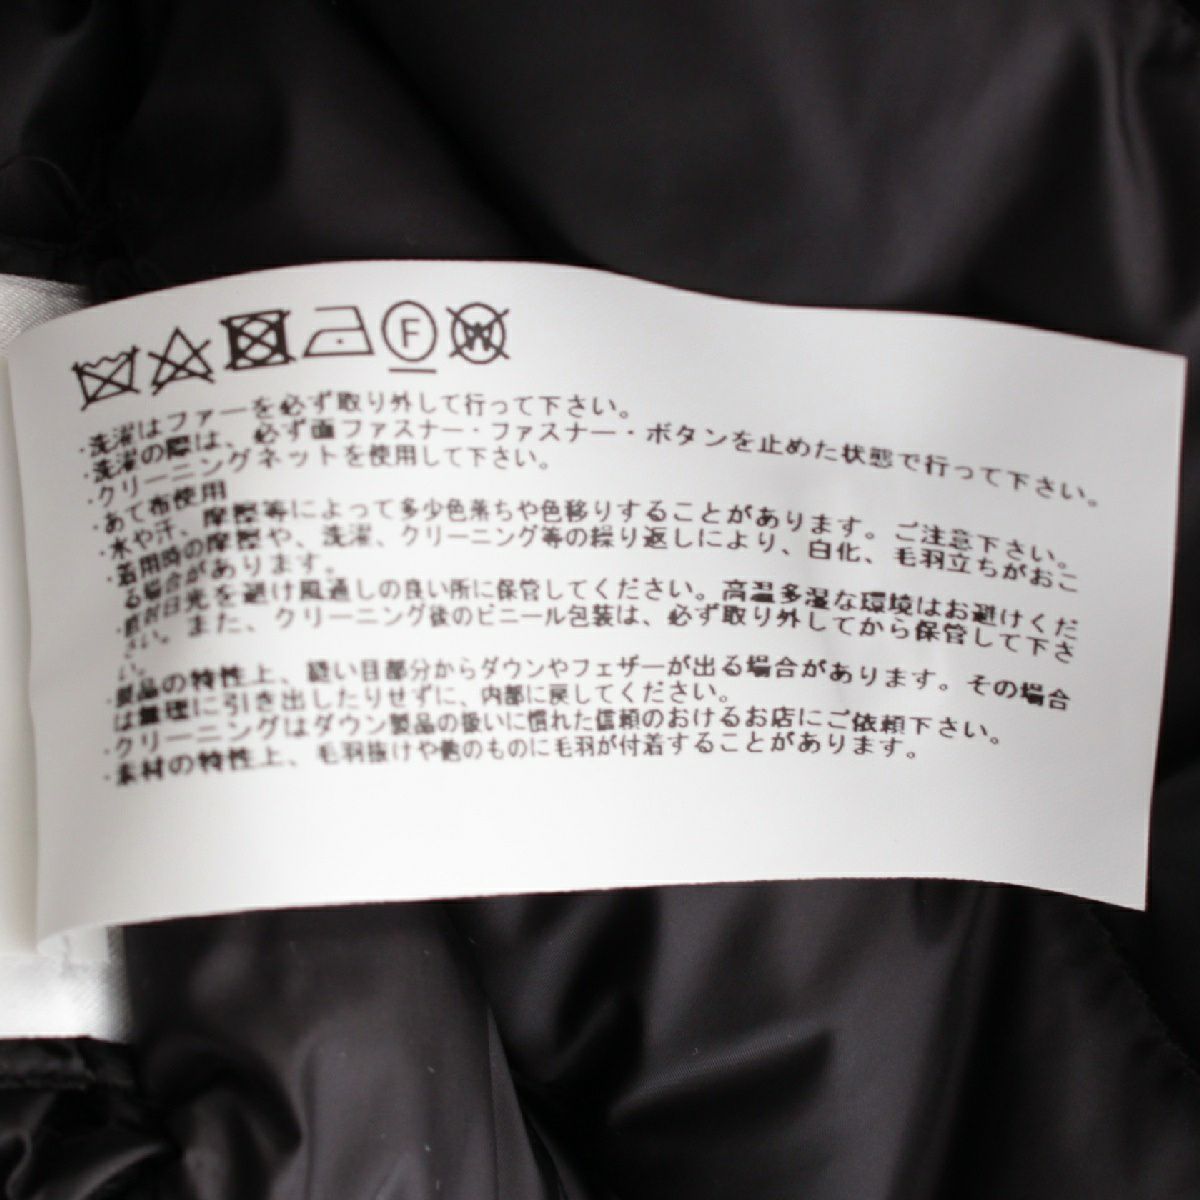 F W
・洗濯はファーを必ず取り外して行って下さい。
・洗濯の際は、必ず面ファスナー・ファスナー・ボタンを止めた状態で行って下さい。
・クリーニングネットを使用して下さい。
・あて布使用
・水や汗、摩擦等によって多少色落ちや色移りすることがあります。ご注意下さい。
・着用時の摩擦や、洗濯、クリーニング等の繰り返しにより、白化、毛羽立ちがおこ
る場合があります。
・直射日光を避け風通しの良い所に保管してください。高温多湿な環境はお避けくだ
さい。また、クリーニング後のビニール包装は、必ず取り外してから保管して下さ
い。
・製品の特性上、縫い目部分からダウンやフェザーが出る場合があります。その場合
は無理に引き出したりせずに、内部に戻してください。
・クリーニングはダウン製品の扱いに慣れた信頼のおけるお店にご依頼下さい。
・素材の特性上、毛羽抜けや他のものに毛羽が付着することがあります。